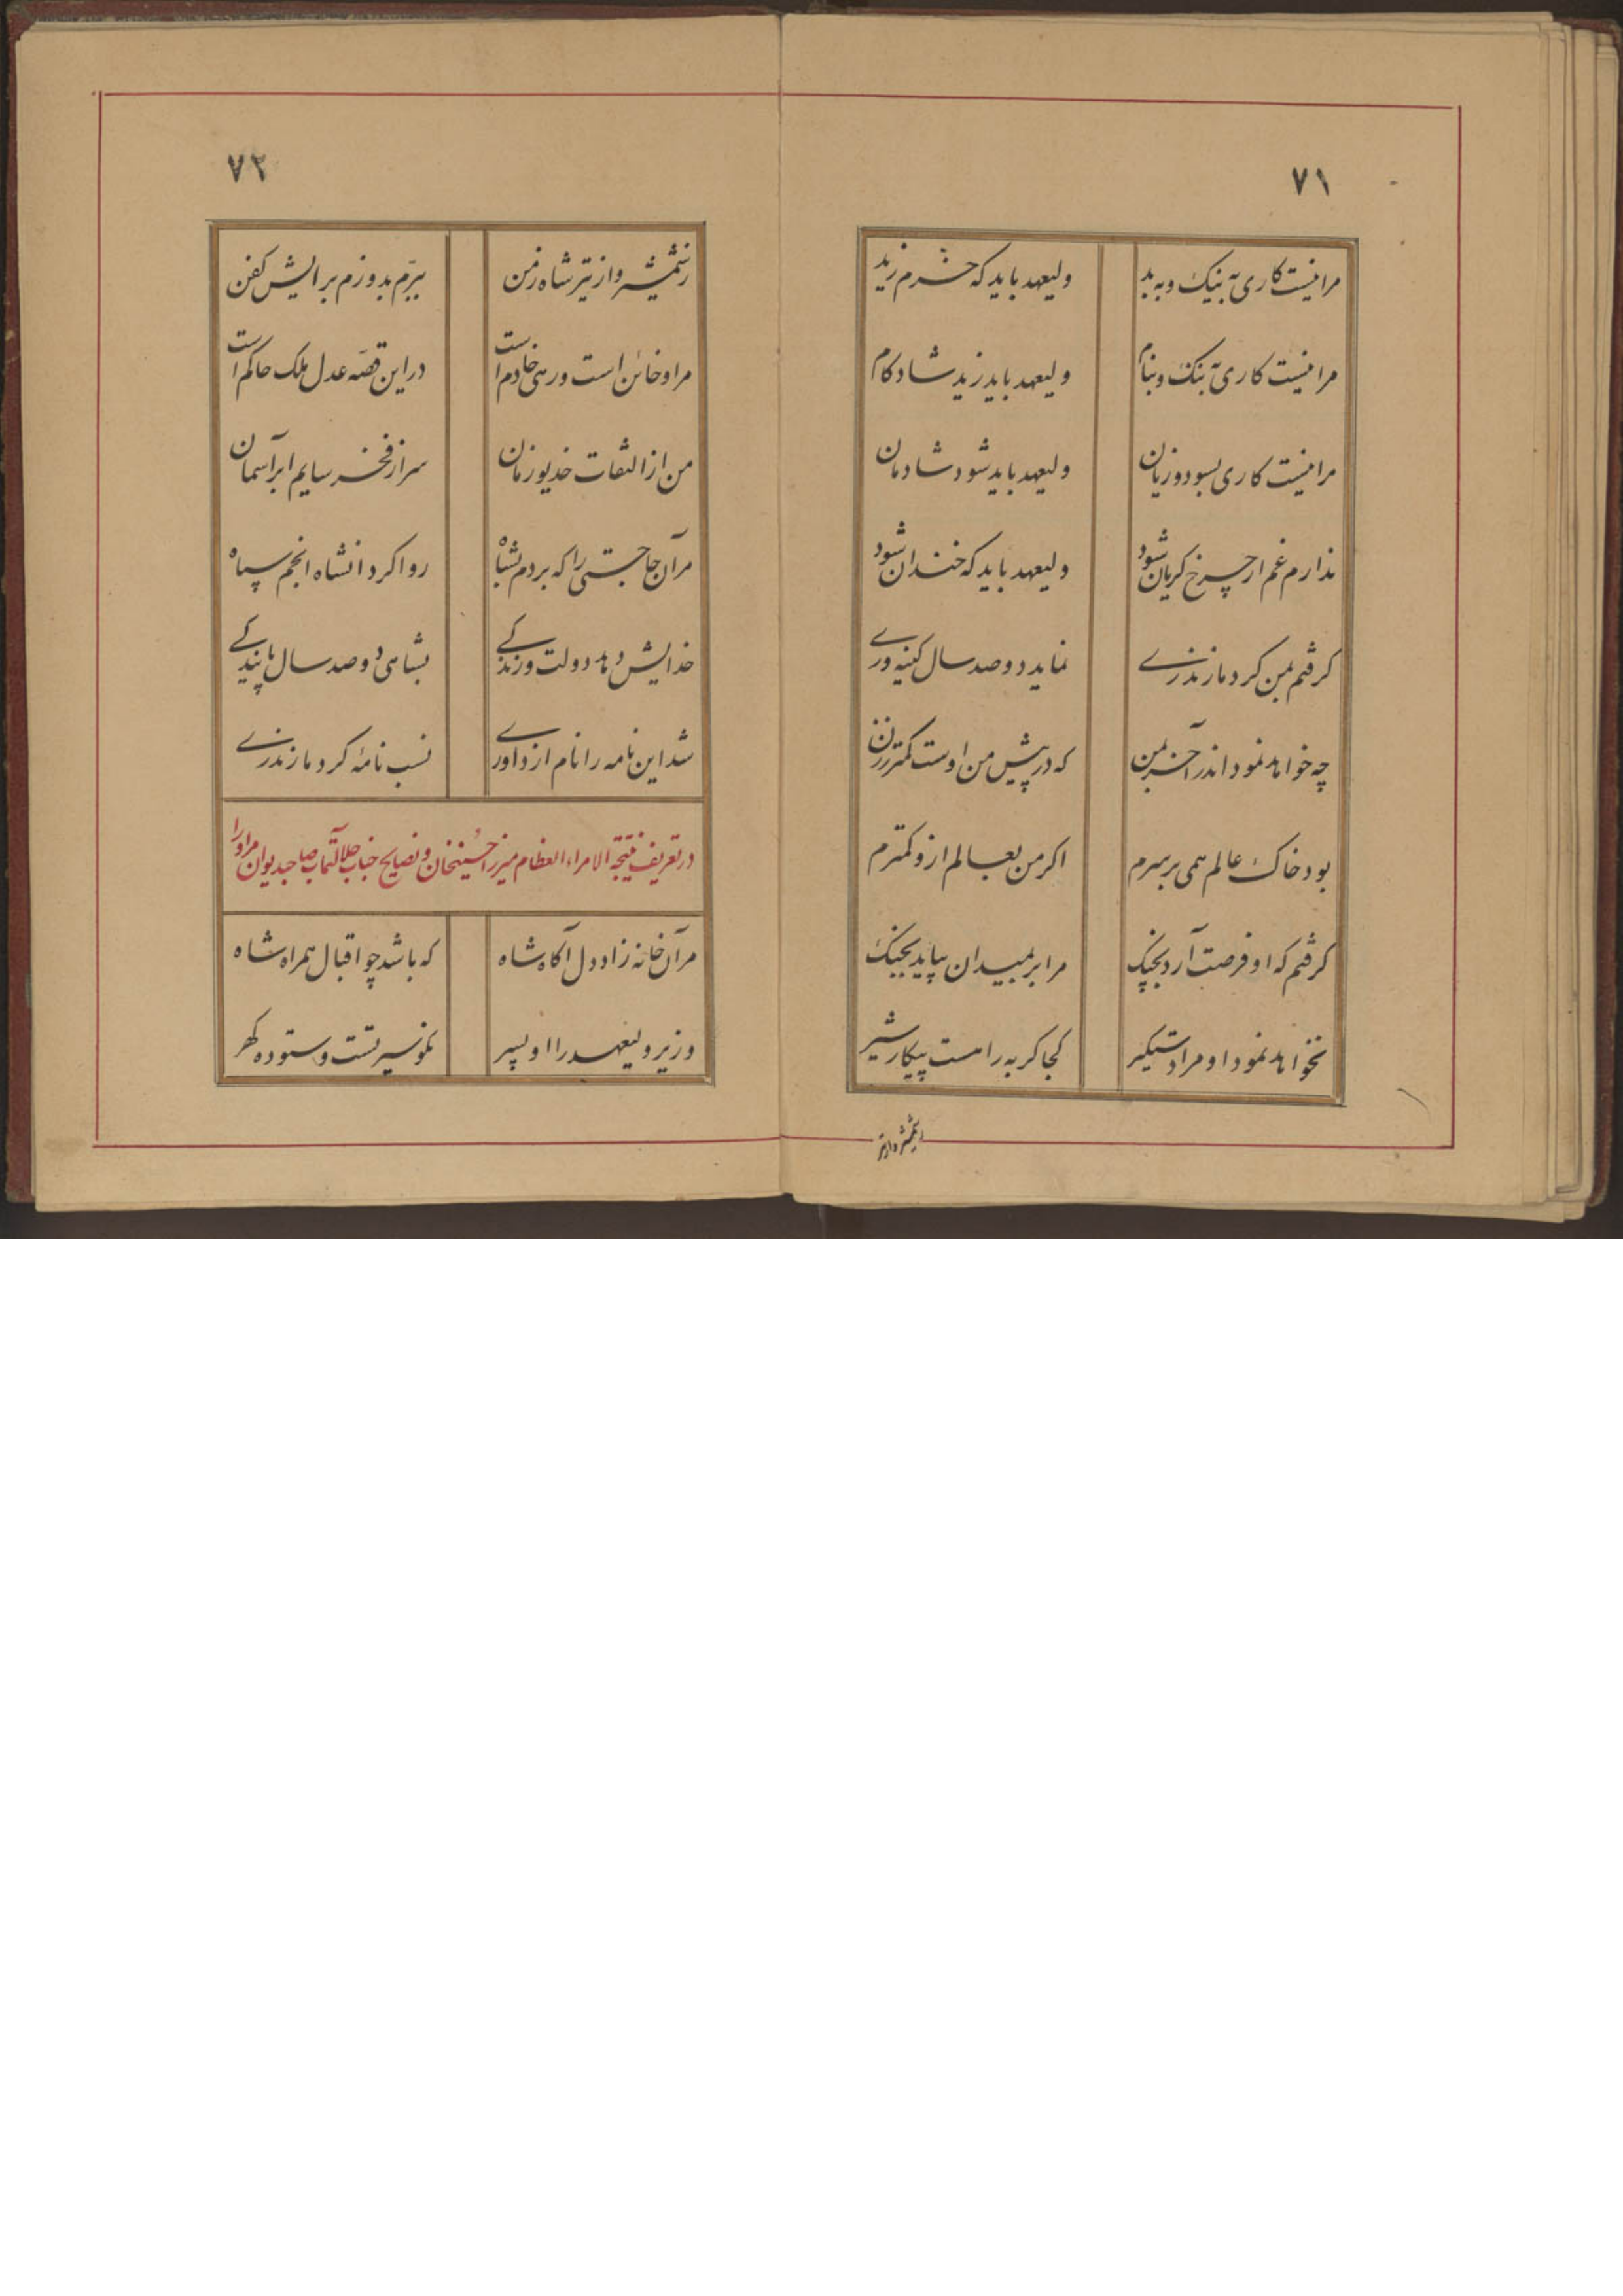 ۷۱
مرا نیست کاری به نیک و به بد ولیعهد باید که خرم زید
مرا نیست کاری به ننگ و بنام ولیعهد باید زید شادکام
مرا نیست کاری بسود و زیان ولیعهد باید شود شادمان
ندارم غم ار چرخ کریان شود ولیعهد باید که خندان شود
کرفتم بمن کرد مازندرے نماید دوصد سال کینه ورے
چه خواهد نمود اندر آخر بمن که در پیش من اوست کمتر ز زن
بود خاک عالم همی بر سرم اکر من بعالم ازو کمترم
کرفتم که او فرصت آرد بچنک مرا بر بمیدان بیاید بجنک
نخواهد نمود او مرا دستکیر کجا کربه را هست پیکار شیر
زشمشیر واز تیر
۷۲
زشمشیر و از تیر شاه زمن ببرّم بدوزم برایش کفن
مر او خائن است و رهی خادم است در این قصّه عدل ملک حاکم است
من از التفات خدیو زمان سر از فخر سایم ابر آسمان
مر آن حاجتی را که بردم بشاه روا کرد آنشاه انجم سپاه
خدایش دهد دولت و زندکے بشاهی دوصد سال پایندکے
شد این نامه را نام از داورے نسب نامهٔ کرد مازندرے
در تعریف نتیجة الامراء العظام میرزا حسینخان و نصایح جناب جلالتمآب صاحبدیوان مر او را
مر آن خانه زاد دل آکاه شاه که باشد چو اقبال همراه شاه
وزیر ولیعهد را او پسر نکو سیرتست و ستوده کهر